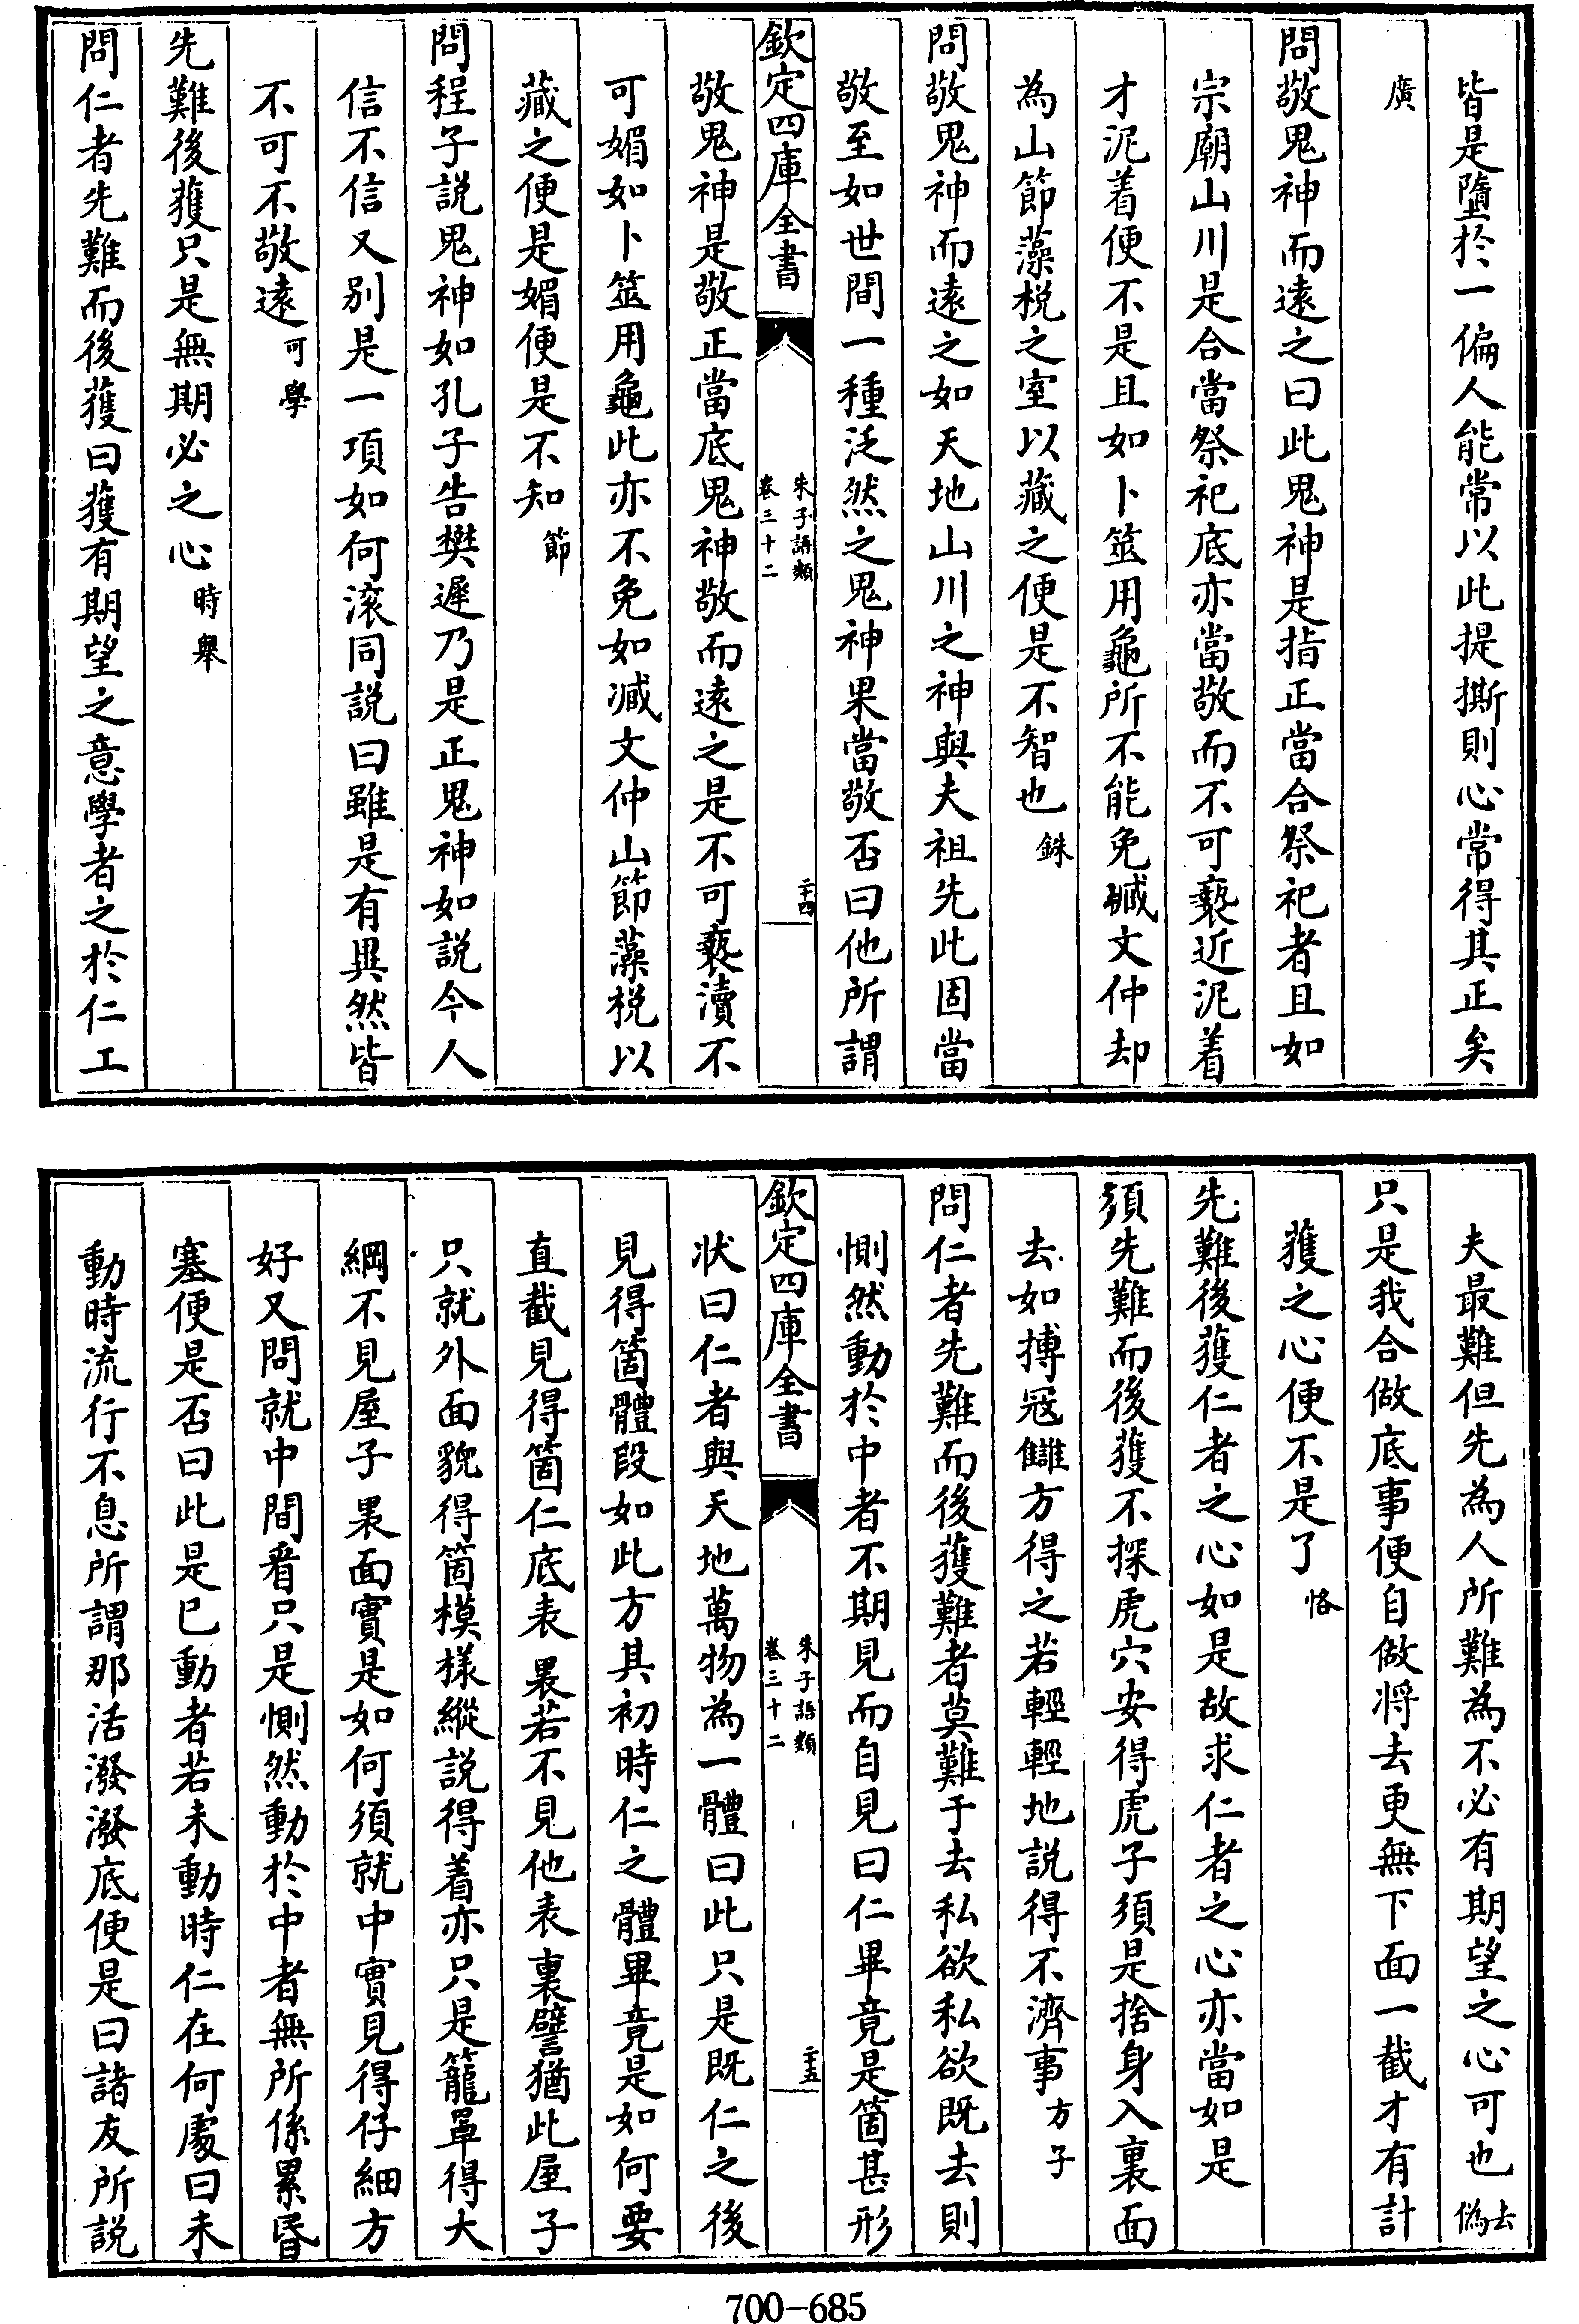 皆是墮於一偏人能常以此提撕則心常得其正矣
廣
問敬鬼神而遠之曰此鬼神是指正當合祭祀者且如
宗廟山川是合當祭祀底亦當敬而不可褻近泥着
才泥着便不是且如卜筮用龜所不能免臧文仲却
為山節藻梲之室以藏之便是不智也銖
問敬鬼神而遠之如天地山川之神與夫祖先此固當
敬至如世間一種泛然之鬼神果當敬否曰他所謂
欽定四庫全書
朱子語類
卷三十二
二十四
敬鬼神是敬正當底鬼神敬而遠之是不可褻瀆不
可媚如卜筮用龜此亦不免如減文仲山節藻梲以
藏之便是媚便是不知節
問程子説鬼神如孔子告樊遲乃是正鬼神如説今人
信不信又别是一項如何滚同説曰雖是有異然皆
不可不敬遠可學
先難後獲只是無期必之心時舉
問仁者先難而後獲曰獲有期望之意學者之於仁工
夫最難但先為人所難為不必有期望之心可也去偽
只是我合做底事便自做將去更無下面一截才有計
獲之心便不是了恪
先難後獲仁者之心如是故求仁者之心亦當如是
須先難而後獲不探虎穴安得虎子須是捨身入裏面
去如搏寇讎方得之若輕輕地説得不濟事方子
問仁者先難而後獲難者莫難于去私欲私欲既去則
惻然動於中者不期見而自見曰仁畢竟是箇甚形
欽定四庫全書
朱子語類
卷三十二
二十五
状曰仁者與天地萬物為一體曰此只是既仁之後
見得箇體段如此方其初時仁之體畢竟是如何要
直截見得箇仁底表裏若不見他表裏譬猶此屋子
只就外面貌得箇模様縱説得着亦只是籠罩得大
綱不見屋子裏面實是如何須就中實見得仔細方
好又問就中間看只是惻然動於中者無所係累昏
塞便是否曰此是已動者若未動時仁在何處曰未
動時流行不息所謂那活潑潑底便是曰諸友所説
700-685